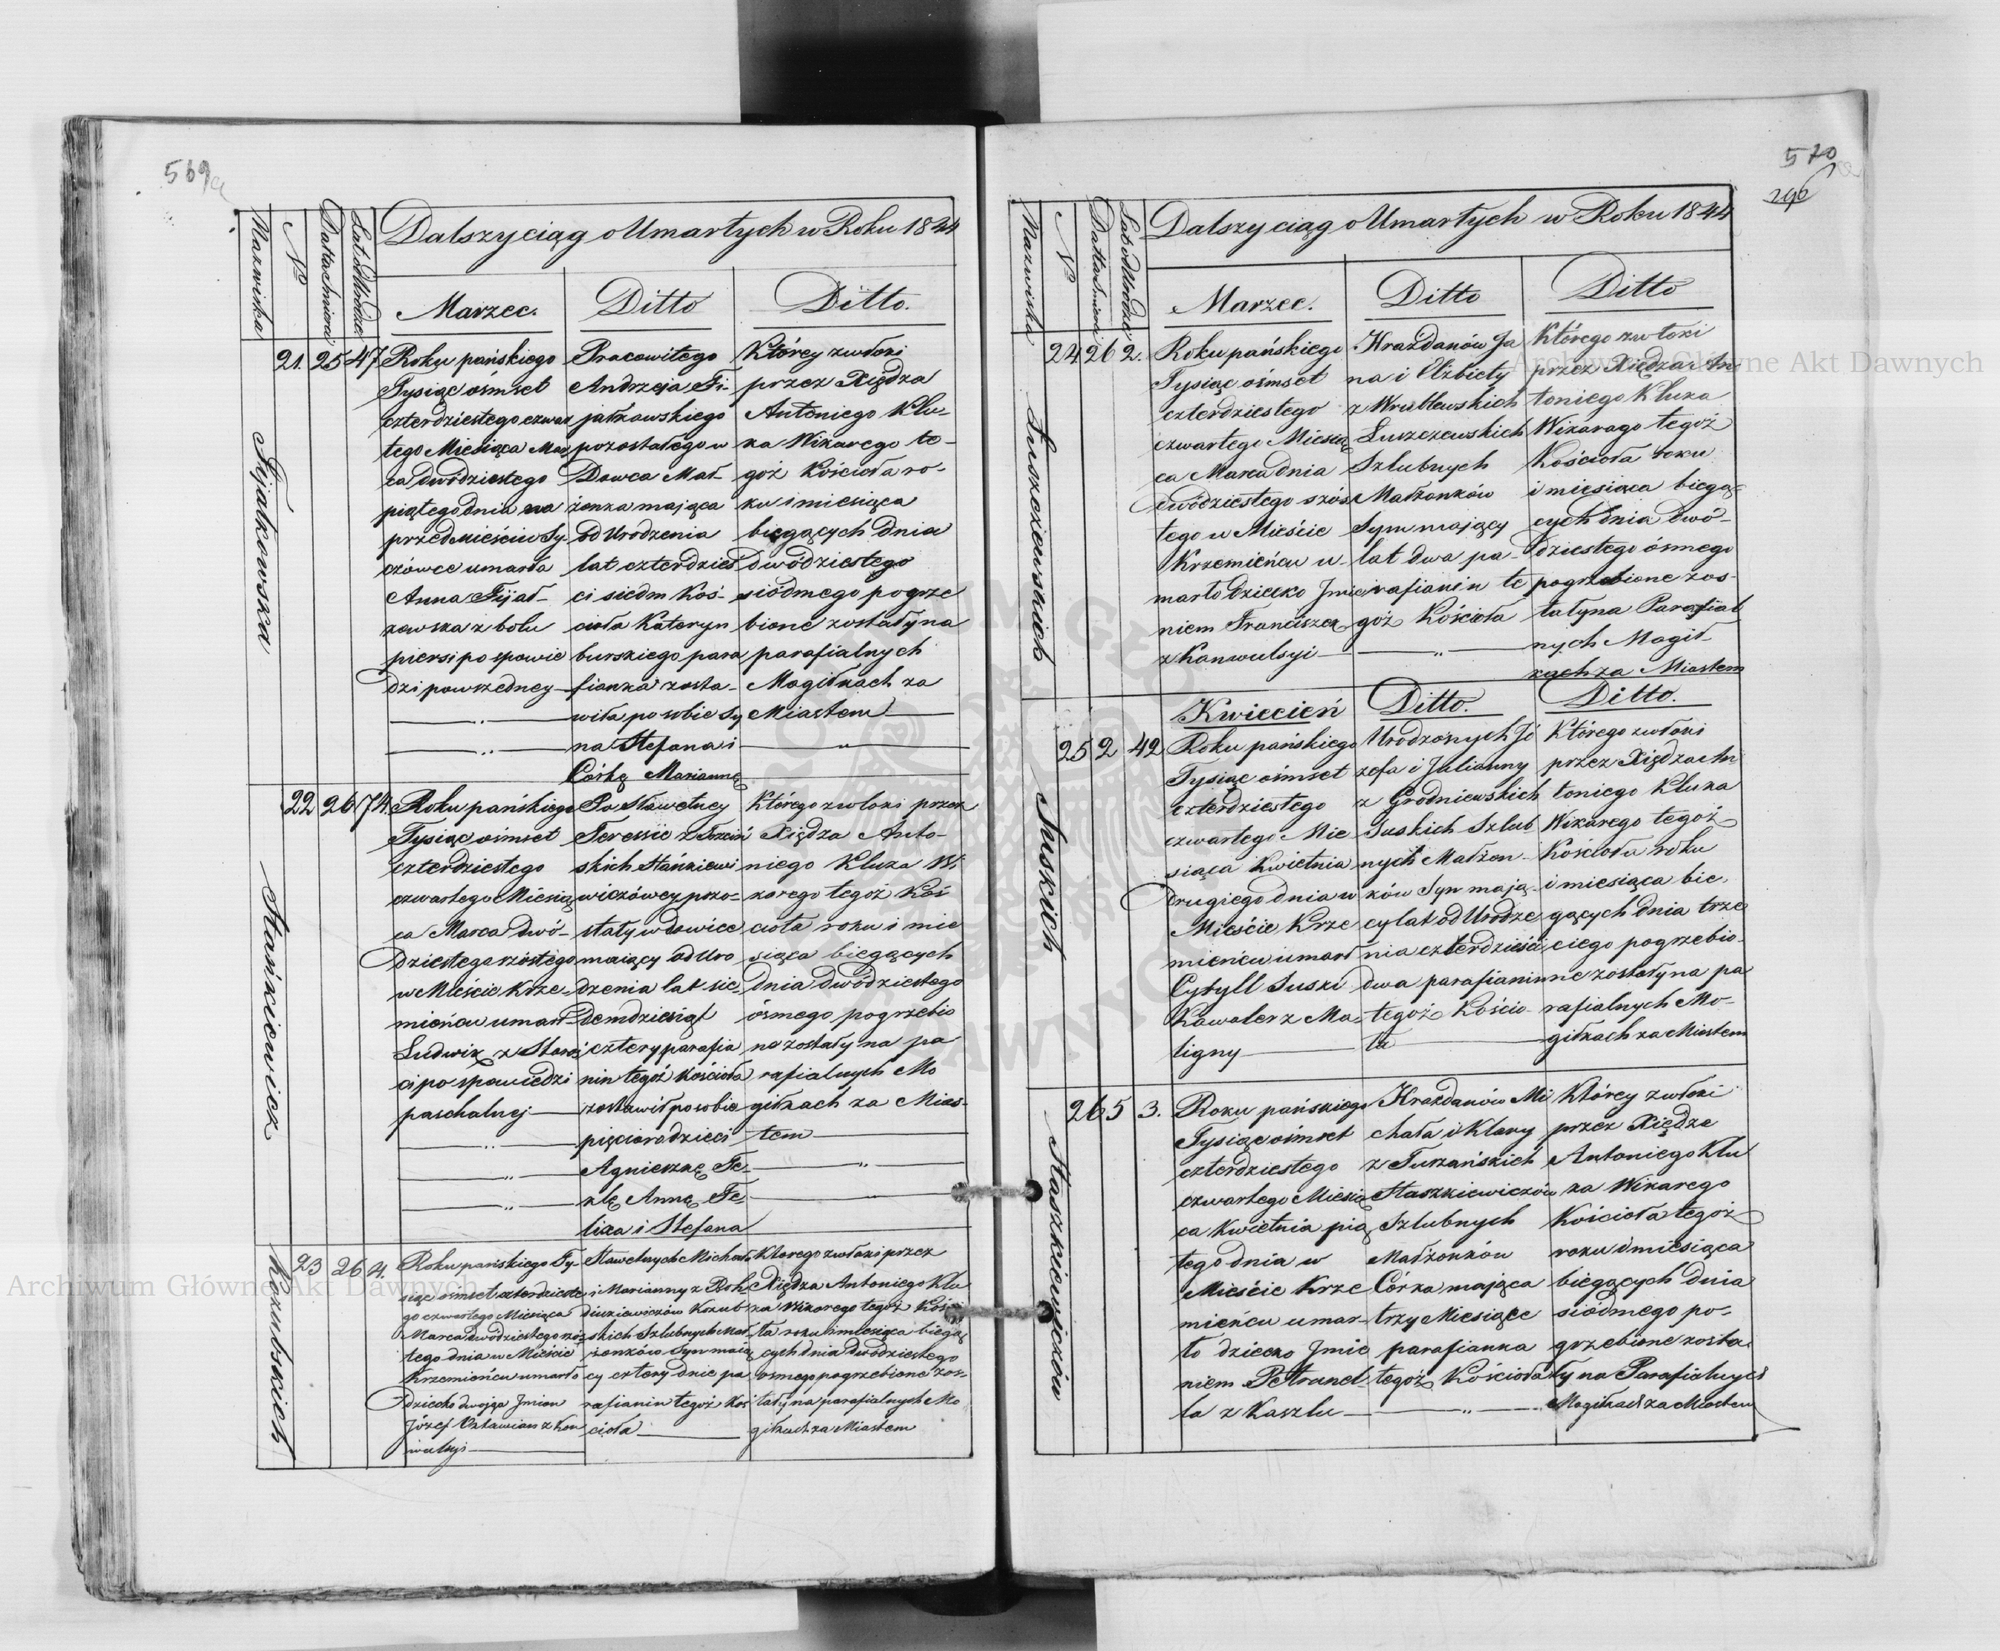 569
Nazwiska
No
Datta śmierci
Lat od Urodze
Dalszy ciąg o Umartych w Roku 1844
Marzec.
Ditto
Ditto.
Fijałkowska
21. 25 47
Roku pańskiego
Tysiąc ośmset
czterdziestego czwar
tego Miesiąca Mar
ca dwódziestego
piątego dnia na
przedmieściu Sy-
czówce umarła
Anna Fijał-
kowska z bolu
piersi po spowie
dzi powszedney
Pracowitego
Andrzeja Fi-
jałkowskiego
pozostałego w
Dowca Mał-
żonka mająca
od Urodzenia
lat czterdzieś
ci siedm Koś-
cioła Kateryn
burskiego para
fianka zosta-
wiła po sobie Sy
na Stefana i
Córkę Mariannę
Którey zwłoki
przez Xiędza
Antoniego Klu-
ka Wikarego te-
goż Kościoła ro-
ku i miesiąca
biegących dnia
dwódziestego
siódmego pogrze
bione zostały na
parafialnych
Mogiłkach za
Miastem
Stańkiewicz
22 26 74.
Roku pańskiego
Tysiąc ośmset
czterdziestego
czwartego Miesią
ca Marca dwó-
dziestego szóstego
w Mieście Krze-
mieńcu umarł
Ludwik z Staroś
ci po spowiedzi
paschalnej
Po Sławetney
Teressie z
skich Stańkiewi
wiczówey pozo-
stały wdowiec
maiący od Uro
dzenia lat sie-
demdziesiąt
cztery parafia
nin tegoż Kościoła
zostawił po sobie
pięcioro dzieci
Agnieszkę Te-
klę Annę Fe-
lixa i Stefana
Którego zwłoki przez
Xiędza Anto-
niego Kluka Wi
karego tegoż Koś
cioła roku i mie
siąca biegących
dnia dwódziestego
ósmego pogrzebio
ne zostały na pa
rafialnych Mo
giłkach za Mias-
tem
Kozubskich
23 26 4.
Roku pańskiego Ty-
siąc ośmset czterdzieste
go czwartego Miesiąca
Marca dwódziestego szós-
tego dnia w Mieście
Krzemieńcu umarło
dziecko dwojga Jmion
Józef Oktawian z Kon
wulsyi
Sławetnych Michała
i Marianny z Roh
dziukiewiczów Kozub-
skich Szlubnych Mał
żonków Syn maią
cy cztery dnie pa
rafianin tegoż Koś
cioła
Którego zwłoki przez
Xiędza Antoniego Klu
ka Wikarego tegoż Kościo
ła roku i miesiąca biegą
cych dnia dwódziestego
osmego pogrzebione zos-
tały na parafialnych Mo
giłkach za Miastem
570
296
Nazwiska
No
Datta śmierci
Lat od Urodze
Dalszy ciąg o Umartych w Roku 1844
Marzec.
Ditto
Ditto
Łuszczewskich
24 26 2.
Roku pańskiego
Tysiąc ośmset
czterdziestego
czwartego Miesią
ca Marca dnia
dwódziestego szós
tego w Mieście
Krzemieńcu u-
marło dziecko Jmie
niem Franciszek
z Konwulsyi
Hrażdanów Ja
na i Elżbiety
z Wrublewskich
Łuszczewskich
Szlubnych
Małżonków
Syn mający
lat dwa pa-
rafianin te
goż Kościoła
Którego zwłoki
przez Xiędza An
toniego Kluka
Wikarago tegoż
Kościoła roku
i miesiąca biegą-
cych dnia dwó-
dziestego ósmego
pogrzebione zos-
tały na Parafial
nych Mogił-
kach za Miastem
Kwiecień
Ditto.
Ditto.
Suskich
25 2 42
Roku pańskiego
Tysiąc ośmset
czterdziestego
czwartego Mie
siąca Kwietnia
drugiego dnia w
Mieście Krze
mieńcu umarł
Cyryll Suski
Kawaler z Ma-
ligny
Urodzonych Jó
zefa i Julianny
z Grodniewskich
Suskich Szlub
nych Małżon-
ków Syn mają-
cy lat od Urodze
nia czterdzieści
dwa parafianin
tegoż Kościo-
ła
Którego zwłoki
przez Xiędza An
toniego Kluka
Wikarego tegoż
Kościoła roku
i miesiąca bie-
gących dnia trze
ciego pogrzebio-
ne zostały na pa
rafialnych Mo-
giłkach za Miastem
Staszkiewiczów
26 5 3.
Roku pańskiego
Tysiąc ośmset
czterdziestego
czwartego Miesią
ca Kwietnia pią
tego dnia w
Mieście Krze
mieńcu umar-
ło dziecko Jmie
niem Petronel-
la z Kaszlu
Hrażdanów Mi
chała i Klary
z Turzańskich
Staszkiewiczów
Szlubnych
Małżonków
Córka mająca
trzy Miesiące
parafianka
tegoż Kościoła
Którey zwłoki
przez Xiędza
Antoniego Klu
ka Wikarego
Kościoła tegoż
roku i miesiąca
biegących dnia
siódmego po-
grzebione zosta-
ły na Parafialnych
Mogiłkach za Miastem
Archiwum Główne Akt Dawnych
Archiwum Główne Akt Dawnych